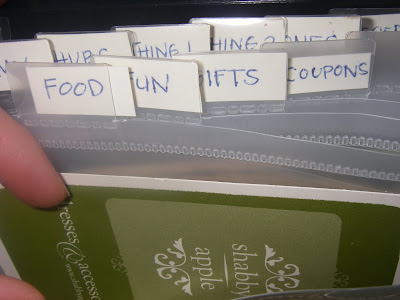 HUBS THING 1 THING 2
FOOD FUN GIFTS COUPONS
shabby
apple
dresses & accesso
www.shabby